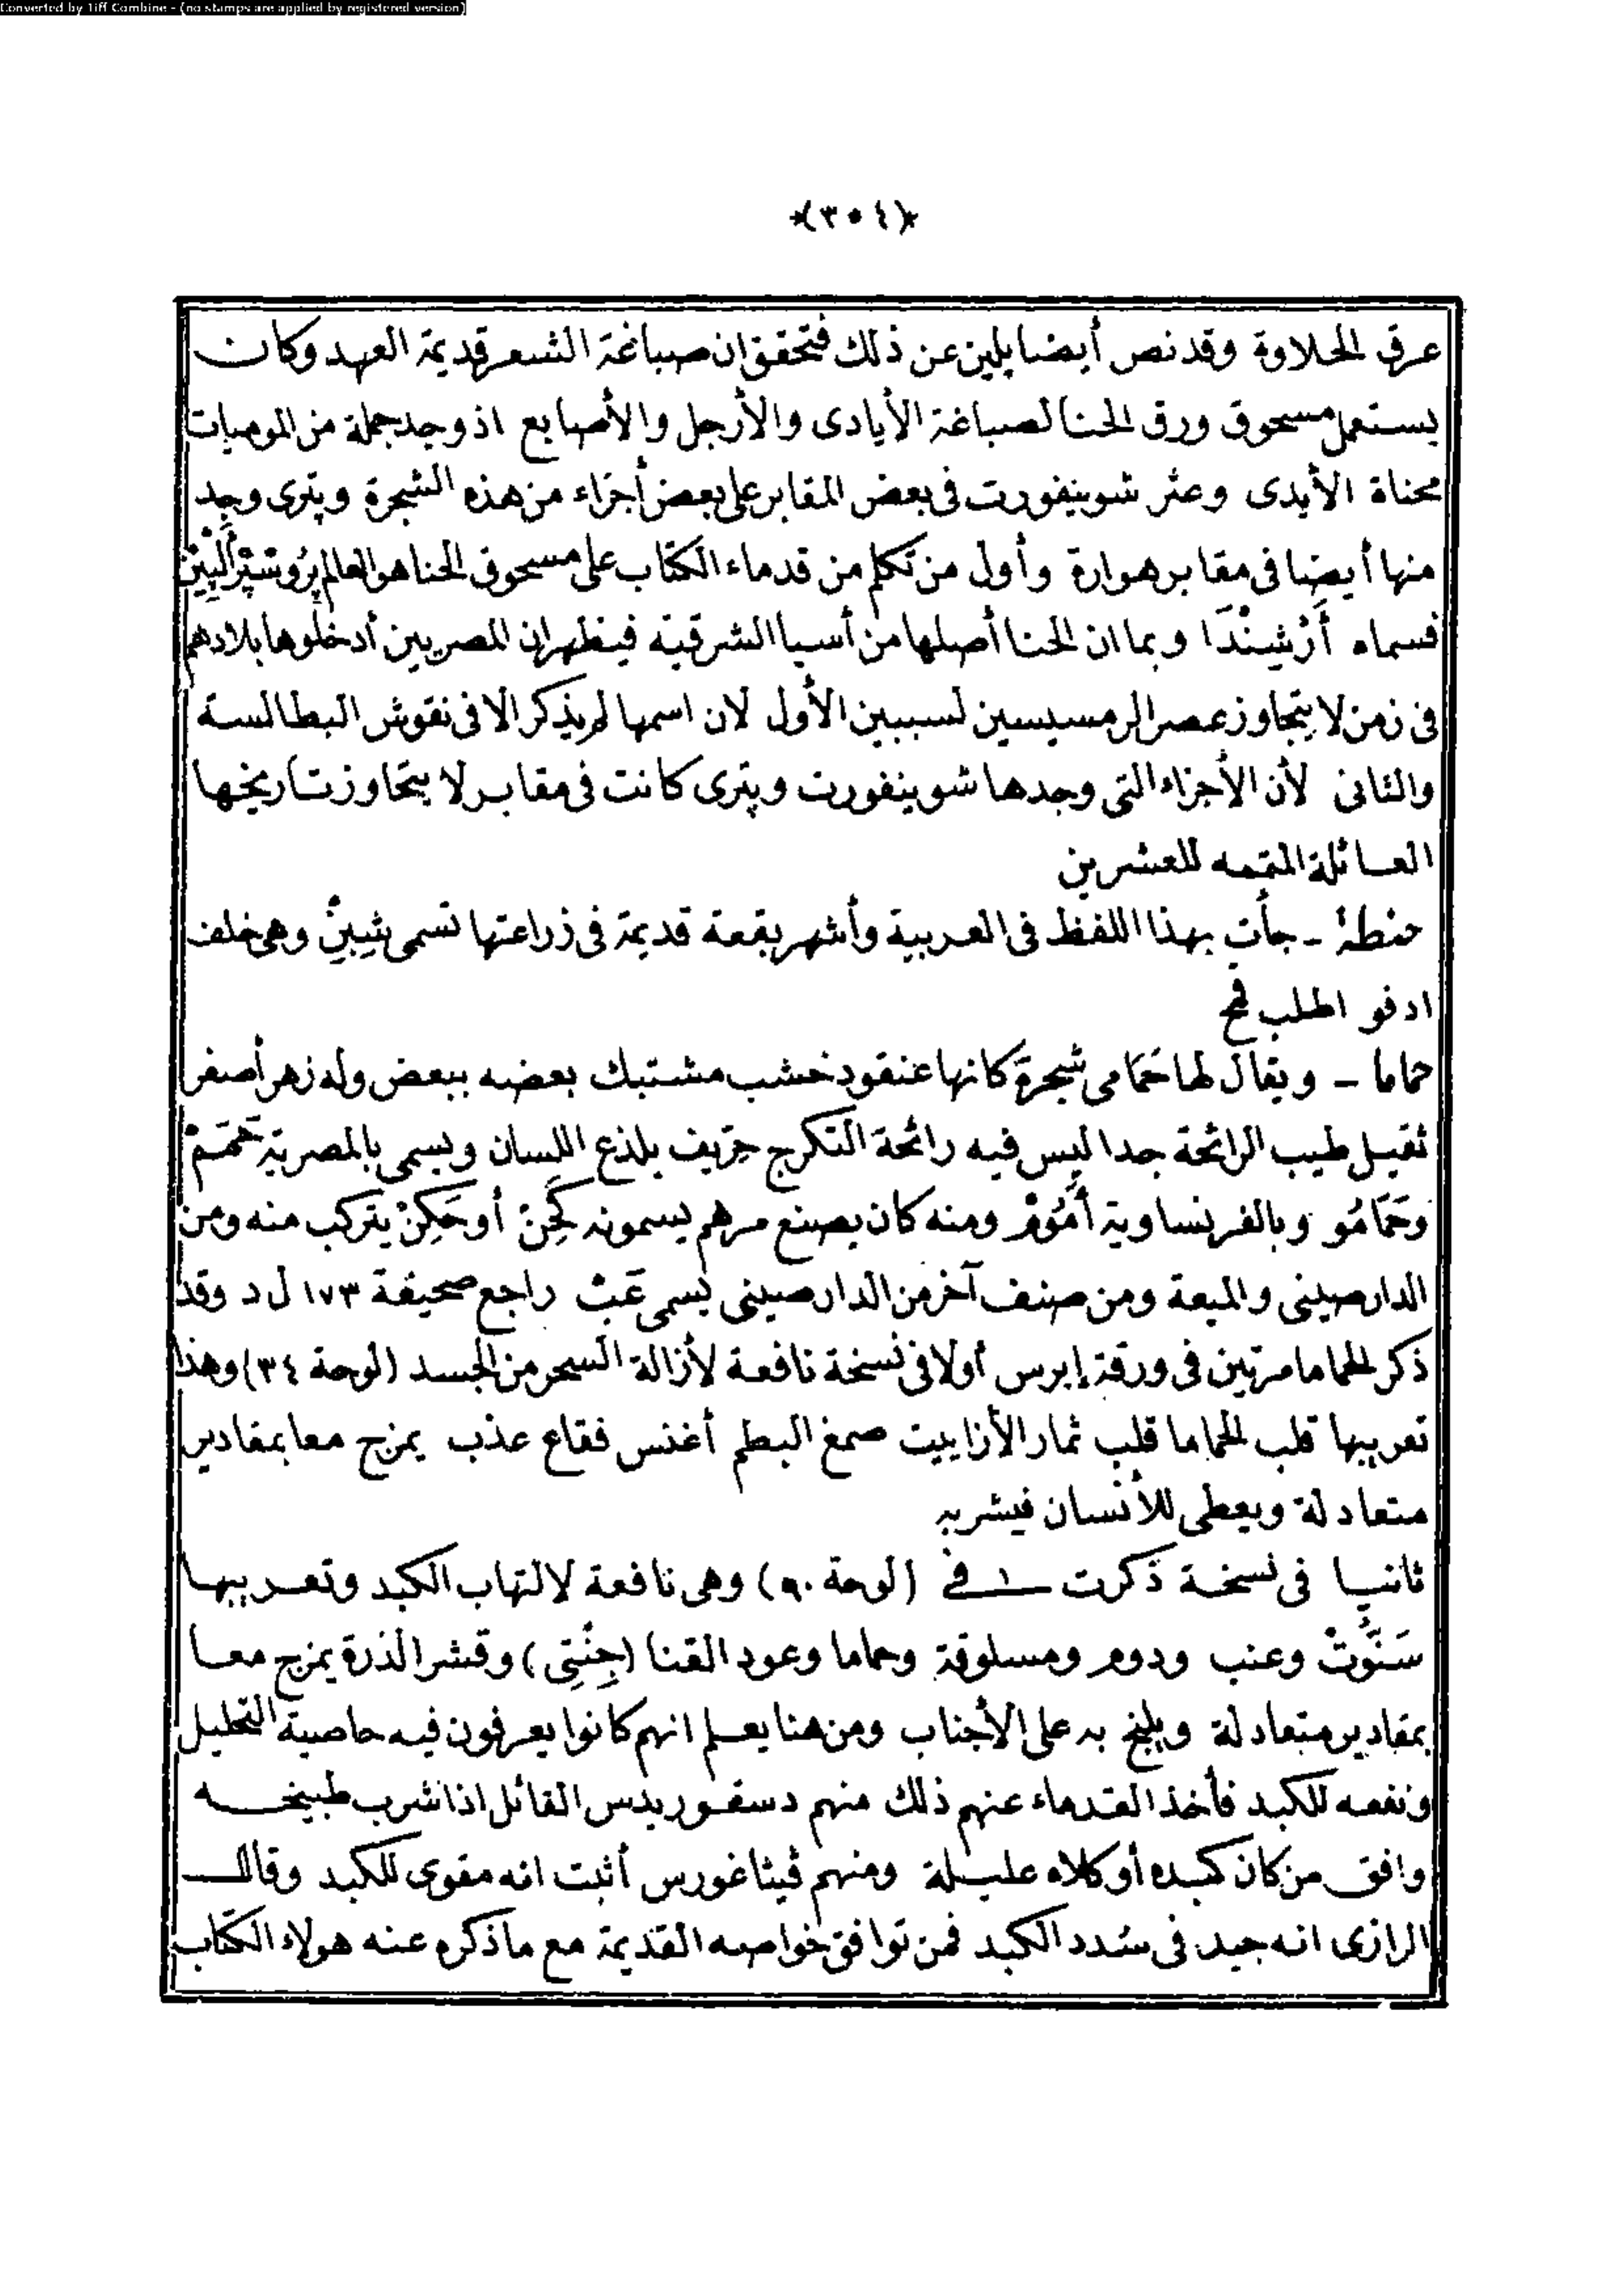 Converted by Tiff Combine - (no stamps are applied by registered version)
*(٣٠٤)*
عرق الحلاوة وقد نص أيضا پلين عن ذلك فتحقق ان صباغة الشعر قديمة العهد وكان
يستعمل مسحوق ورق الحنا لصباغة الأيادى والأرجل والأصابع اذ وجد جملة من الموميات
محناة الأيدى وعثر شوينفورت فى بعض المقابر على بعض أجزاء من هذه الشجرة وپترى وجد
منها أيضا فى مقابر هوارة وأول من تكلم من قدماء الكتاب على مسحوق الحنا هو العالم
فسماه أَرْشِينْدَا وبما ان الحنا أصلها من أسيا الشرقية فيظهر ان المصريين أدخلوها بلادهم
فى زمن لا يتجاوز عصر الرمسيسين لسببين الأول لان اسمها لم يذكر الا فى نقوش البطالسة
والثانى لأن الأجزاء التى وجدها شوينفورت وپترى كانت فى مقابر لا يتجاوز تاريخها
العائلة المتممه للعشرين
حنطة - جأت بهذا اللفظ فى العربية وأشهر بقعة قديمة فى زراعتها تسمى وهى خلف
ادفو اطلب قمح
حماما - ويقال لها حَمَامى شجرة كانها عنقود خشب مشتبك بعضه ببعض وله زهر أصفر
ثقيل طيب الرائحة جدا ليس فيه رائحة التكرج حرّيف يلذع اللسان ويسمى بالمصرية حَمَمْ
وحَمَامُو وبالفرنساوية أَمُومْ ومنه كان يصنع مرهم يسمونه أو حَكِنْ يتركب منه ومن
الدارصينى والميعة ومن صنف آخر من الدارصينى يسمى راجع صحيفة ١٧٣ ل د وقد
ذكر الحماما مرتين فى ورقة إبرس أولا فى نسخة نافعة لأزالة السحر من الجسد (لوحة ٣٤) وهذا
تعريبها قلب الحماما قلب ثمار الأزاييت صمغ البطم أغنس فقاع عذب يمزج معا بمقادير
متعادلة ويعطى للأنسان فيشربه
ثانيا فى نسخة ذكرت فى (لوحة ٩٠) وهى نافعة لالتهاب الكبد وتعريبها
سَنُّوتْ وعنب ودوم ومسلوقة وحماما وعود القنا (جِنْتِى) وقشر الذرة يمزج معا
بمقادير متعادلة ويلبخ به على الأجناب ومن هنا يعلم انهم كانوا يعرفون فيه حاصية التحليل
ونفعه للكبد فأخذ القدماء عنهم ذلك منهم دسقوريدس القائل اذا شرب طبيخه
وافق من كان كبده أو كلاه عليلة ومنهم ڤيثاغورس أثبت انه مقوى للكبد وقال
الرازى انه جيد فى سدد الكبد فمن توافق خواصه القديمة مع ما ذكره عنه هولاء الكتاب